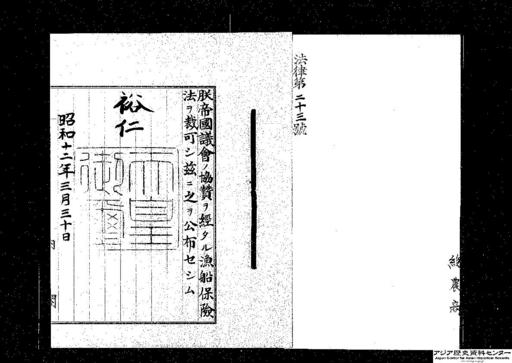 法律第二十三號
朕帝國議會ノ協贊ヲ經タル漁船保險
法ヲ裁可シ茲ニ之ヲ公布セシム
裕仁
天皇御璽
昭和十二年三月三十日
内閣
アジア歴史資料センター
Japan Center for Asian Historical Records